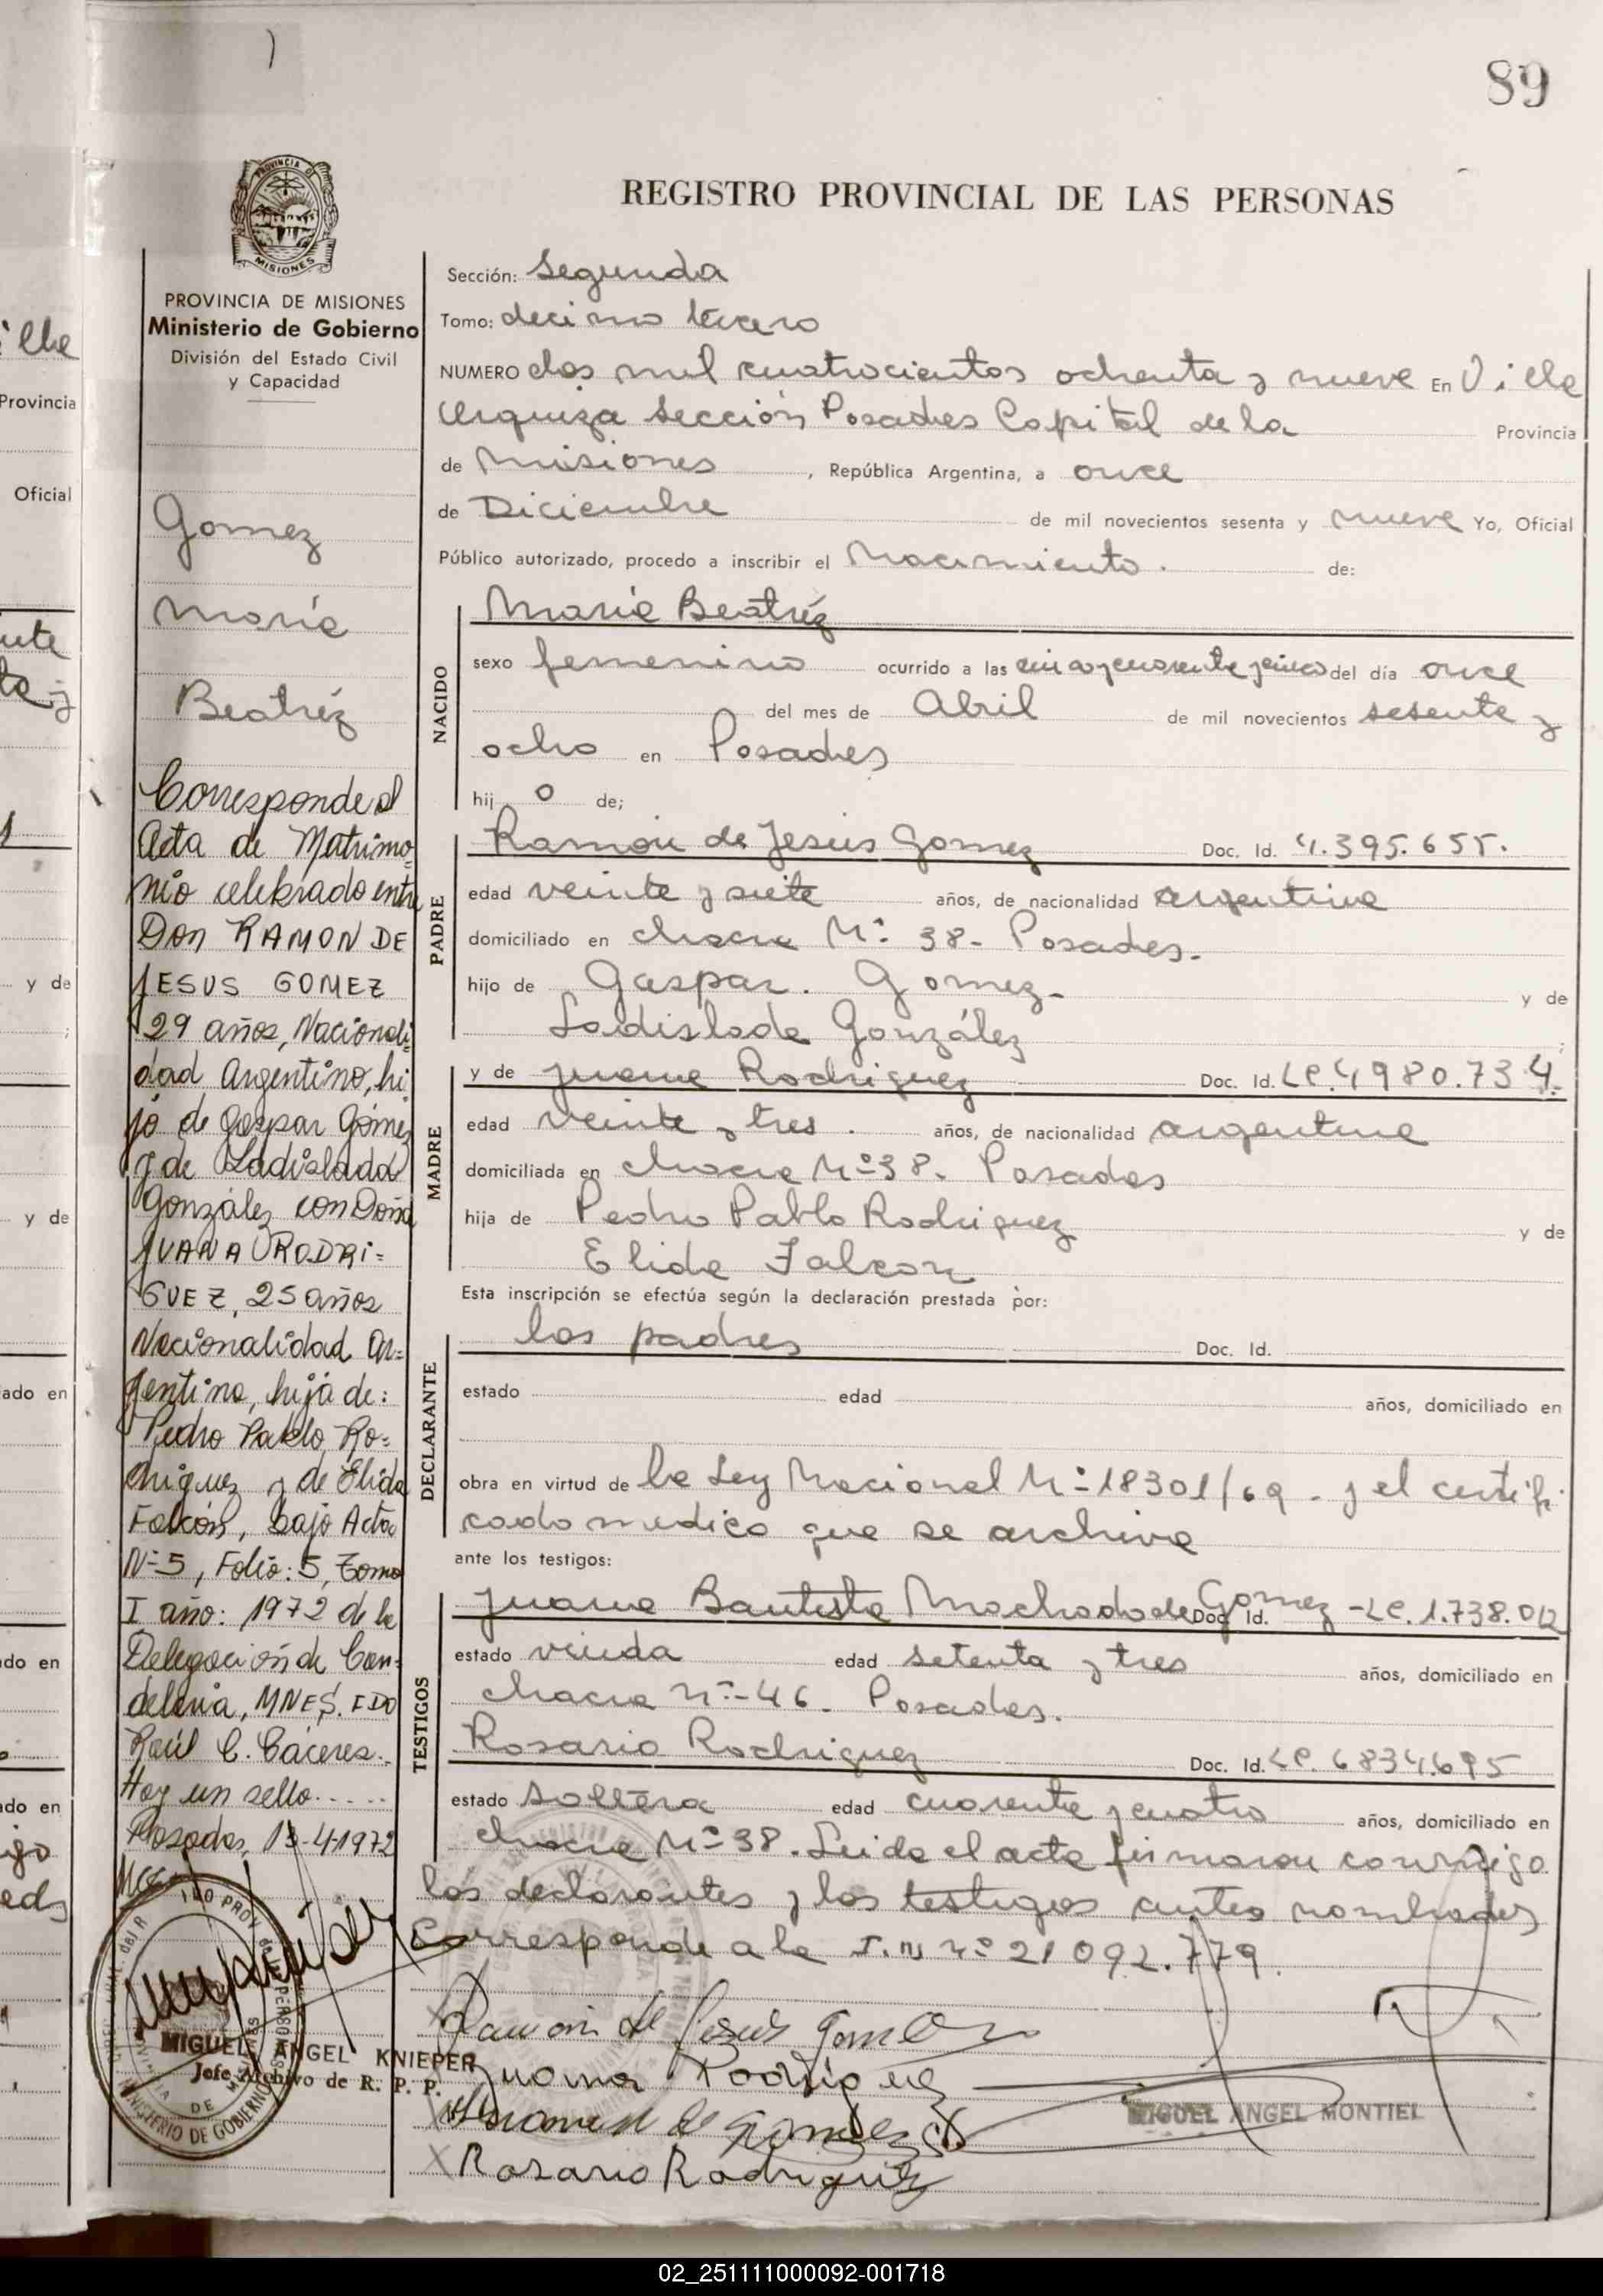 89
REGISTRO PROVINCIAL DE LAS PERSONAS
PROVINCIA DE MISIONES
Ministerio de Gobierno
División del Estado Civil
y Capacidad
Gomez
Maria
Beatríz
Corresponde al
Acta de Matrimo
nio celebrado entre
Don RAMON DE
JESUS GOMEZ
29 años, Nacionali
dad Argentino, hi
jo de Gaspar Gómez
y de Ladislada
González con Doña
JUANA RODRI=
GUEZ, 25 años
Nacionalidad Ar=
gentina, hija de:
Pedro Pablo Ro=
driguez y de Elida
Falcón, bajo Acta
Nº 5, Folio: 5, Tomo
I año: 1972 de la
Delegación de Can-
delaria, MNES. FDO
Raúl C. Cáceres.
Hay un sello.....
Posadas, 13-4-1972
MIGUEL ANGEL KNIEPER
Jefe Archivo de R. P. P.
Sección: Segunda
Tomo: decimo tercero
NUMERO dos mil cuatrocientos ochenta y nueve En Villa
Urquiza Sección Posadas Capital de la Provincia
de Misiones, República Argentina, a once
de Diciembre de mil novecientos sesenta y nueve Yo, Oficial
Público autorizado, procedo a inscribir el Nacimiento. de:
NACIDO
Maria Beatríz
sexo femenino ocurrido a las cinco y cuarenta y cinco del día once
del mes de Abril de mil novecientos sesenta y
ocho en Posadas
hij o de;
PADRE
Ramón de Jesús Gomez Doc. Id. 4.395.655.
edad veinte y siete años, de nacionalidad argentina
domiciliado en chacra Nº 38- Posadas.
hijo de Gaspar. Gomez- y de
Ladislada González
MADRE
y de Juana Rodriguez Doc. Id. LC.4980.734.
edad veinte y tres. años, de nacionalidad argentina
domiciliada en chacra Nº 38. Posadas
hija de Pedro Pablo Rodriguez y de
Elida Falcon
Esta inscripción se efectúa según la declaración prestada por:
DECLARANTE
los padres Doc. Id.
estado edad años, domiciliado en
obra en virtud de la Ley Nacional Nº 18301/69 - y el certifi
cado medico que se archiva
ante los testigos:
TESTIGOS
Juana Bautista Machado de Gomez Doc. Id. -LC. 1.738.012
estado viuda edad setenta y tres años, domiciliado en
chacra nº-46. Posadas.
Rosario Rodriguez Doc. Id. LC. 6834.695
estado soltera edad cuarenta y cuatro años, domiciliado en
chacra Nº 38. Leida el acta firmaron conmigo
los declarantes y los testigos antes nombrados
Corresponde a la I.N nº 21092.779.
Ramon de Jesus Gomez
Juana Rodriguez
de Gomez
Rosario Rodriguez
MIGUEL ANGEL MONTIEL
02_251111000092-001718